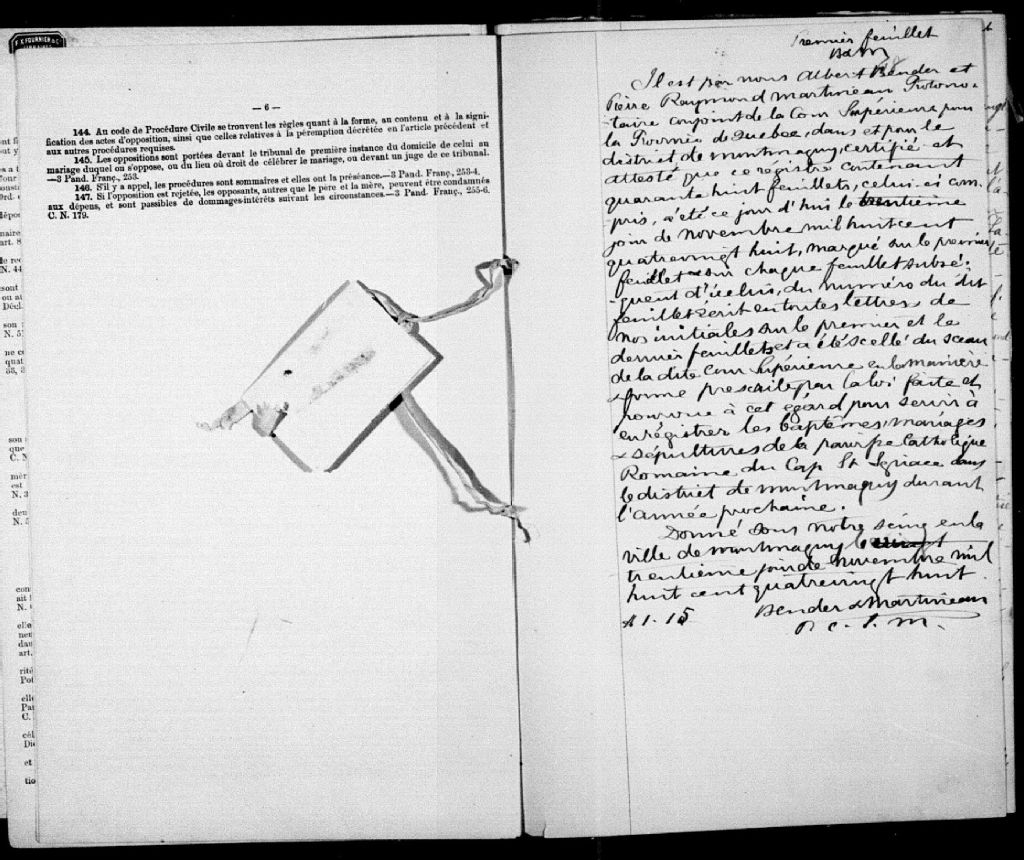 F. X. FOURNIER & C
— 6 —
144. Au code de Procédure Civile se trouvent les règles quant à la forme, au contenu et à la signi-
fication des actes d'opposition, ainsi que celles relatives à la péremption décrétée en l'article précédent et
aux autres procédures requises.
145. Les oppositions sont portées devant le tribunal de première instance du domicile de celui au
mariage duquel on s'oppose, ou du lieu où droit de célébrer le mariage, ou devant un juge de ce tribunal.
—3 Pand. Franç., 253.
146. S'il y a appel, les procédures sont sommaires et elles ont la préséance.—3 Pand. Franç., 253-4.
147. Si l'opposition est rejetée, les opposants, autres que le père et la mère, peuvent être condamnés
aux dépens, et sont passibles de dommages-intérêts suivant les circonstances.—3 Pand. Franç., 255-6.
C. N. 179.
Premier feuillet
B & M
Il est par nous Albert Bender et
Pierre Raymond Martineau Protono-
taire conjoint de la Cour Supérieure pour
la Province de Quebec, dans et pour le
district de Montmagny, certifié et
attesté que ce régistre contenant
quarante huit feuillets, celui-ci com-
pris, a été ce jour d'hui le trentième
jour de novembre mil huit cent
quatrevingt huit, marqué sur le premier
feuillet & sur chaque feuillet subsé-
quent d'icelui, du numéro du dit
feuillet écrit en toutes lettres, de
nos initiales sur le premier et le
dernier feuillets et a été scellé du sceau
de la dite Cour Supérieure en la manière
& forme prescrite par la loi faite et
pourvue à cet égard pour servir à
enrégistrer les baptêmes, mariages
& sépultures de la paroisse Catholique
Romaine du Cap St Ignace dans
le district de Montmagny durant
l'année prochaine.
Donné sous notre seing en la
ville de Montmagny le vingt
trentième jour de novembre mil
huit cent quatrevingt huit.
$1.15 Bender & Martineau
P. C. S. M.